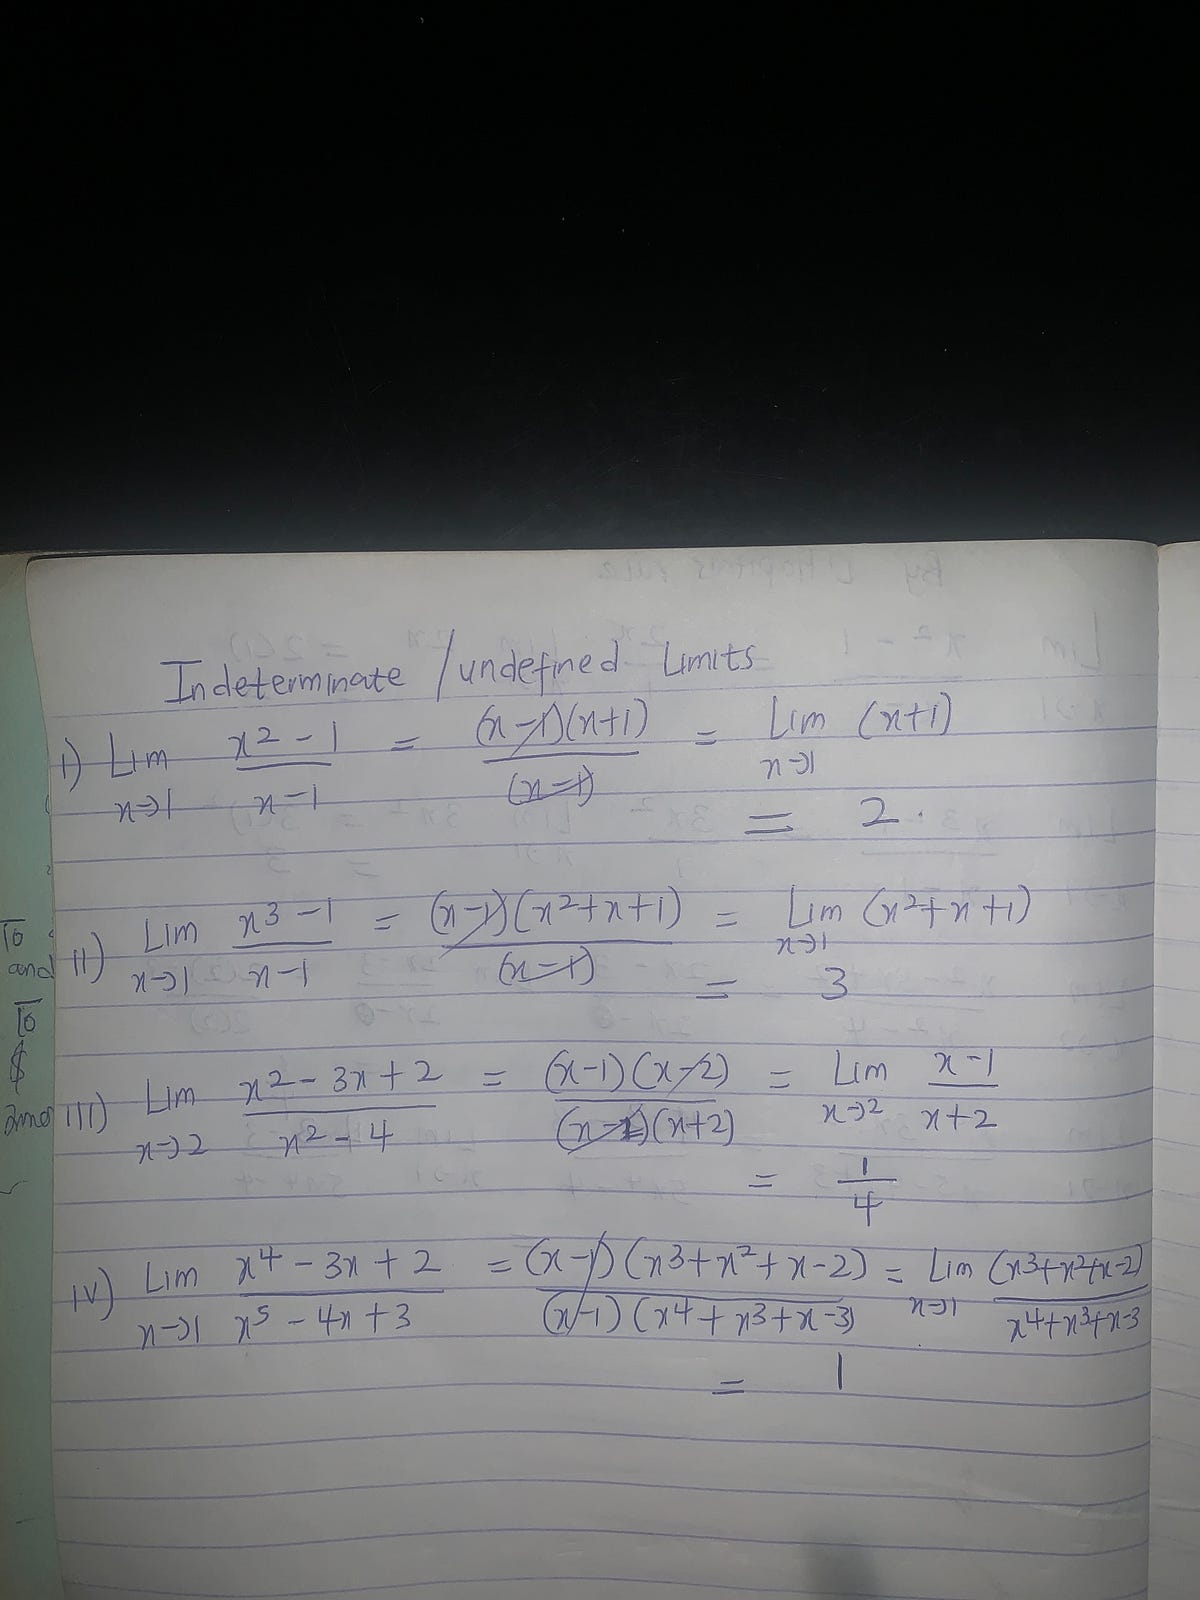 Indeterminate / undefined Limits
i) Lim x→1 x² - 1 / x - 1 = (x-1)(x+1) / (x-1) = Lim x→1 (x+1)
= 2.
ii) Lim x→1 x³ - 1 / x - 1 = (x-1)(x²+x+1) / (x-1) = Lim x→1 (x²+x+1)
= 3
iii) Lim x→2 x² - 3x + 2 / x² - 4 = (x-1)(x-2) / (x-2)(x+2) = Lim x→2 x-1 / x+2
= 1/4
iv) Lim x→1 x⁴ - 3x + 2 / x⁵ - 4x + 3 = (x-1)(x³+x²+x-2) / (x-1)(x⁴+x³+x-3) = Lim x→1 (x³+x²+x-2) / x⁴+x³+x-3
= 1
To
and
To
$